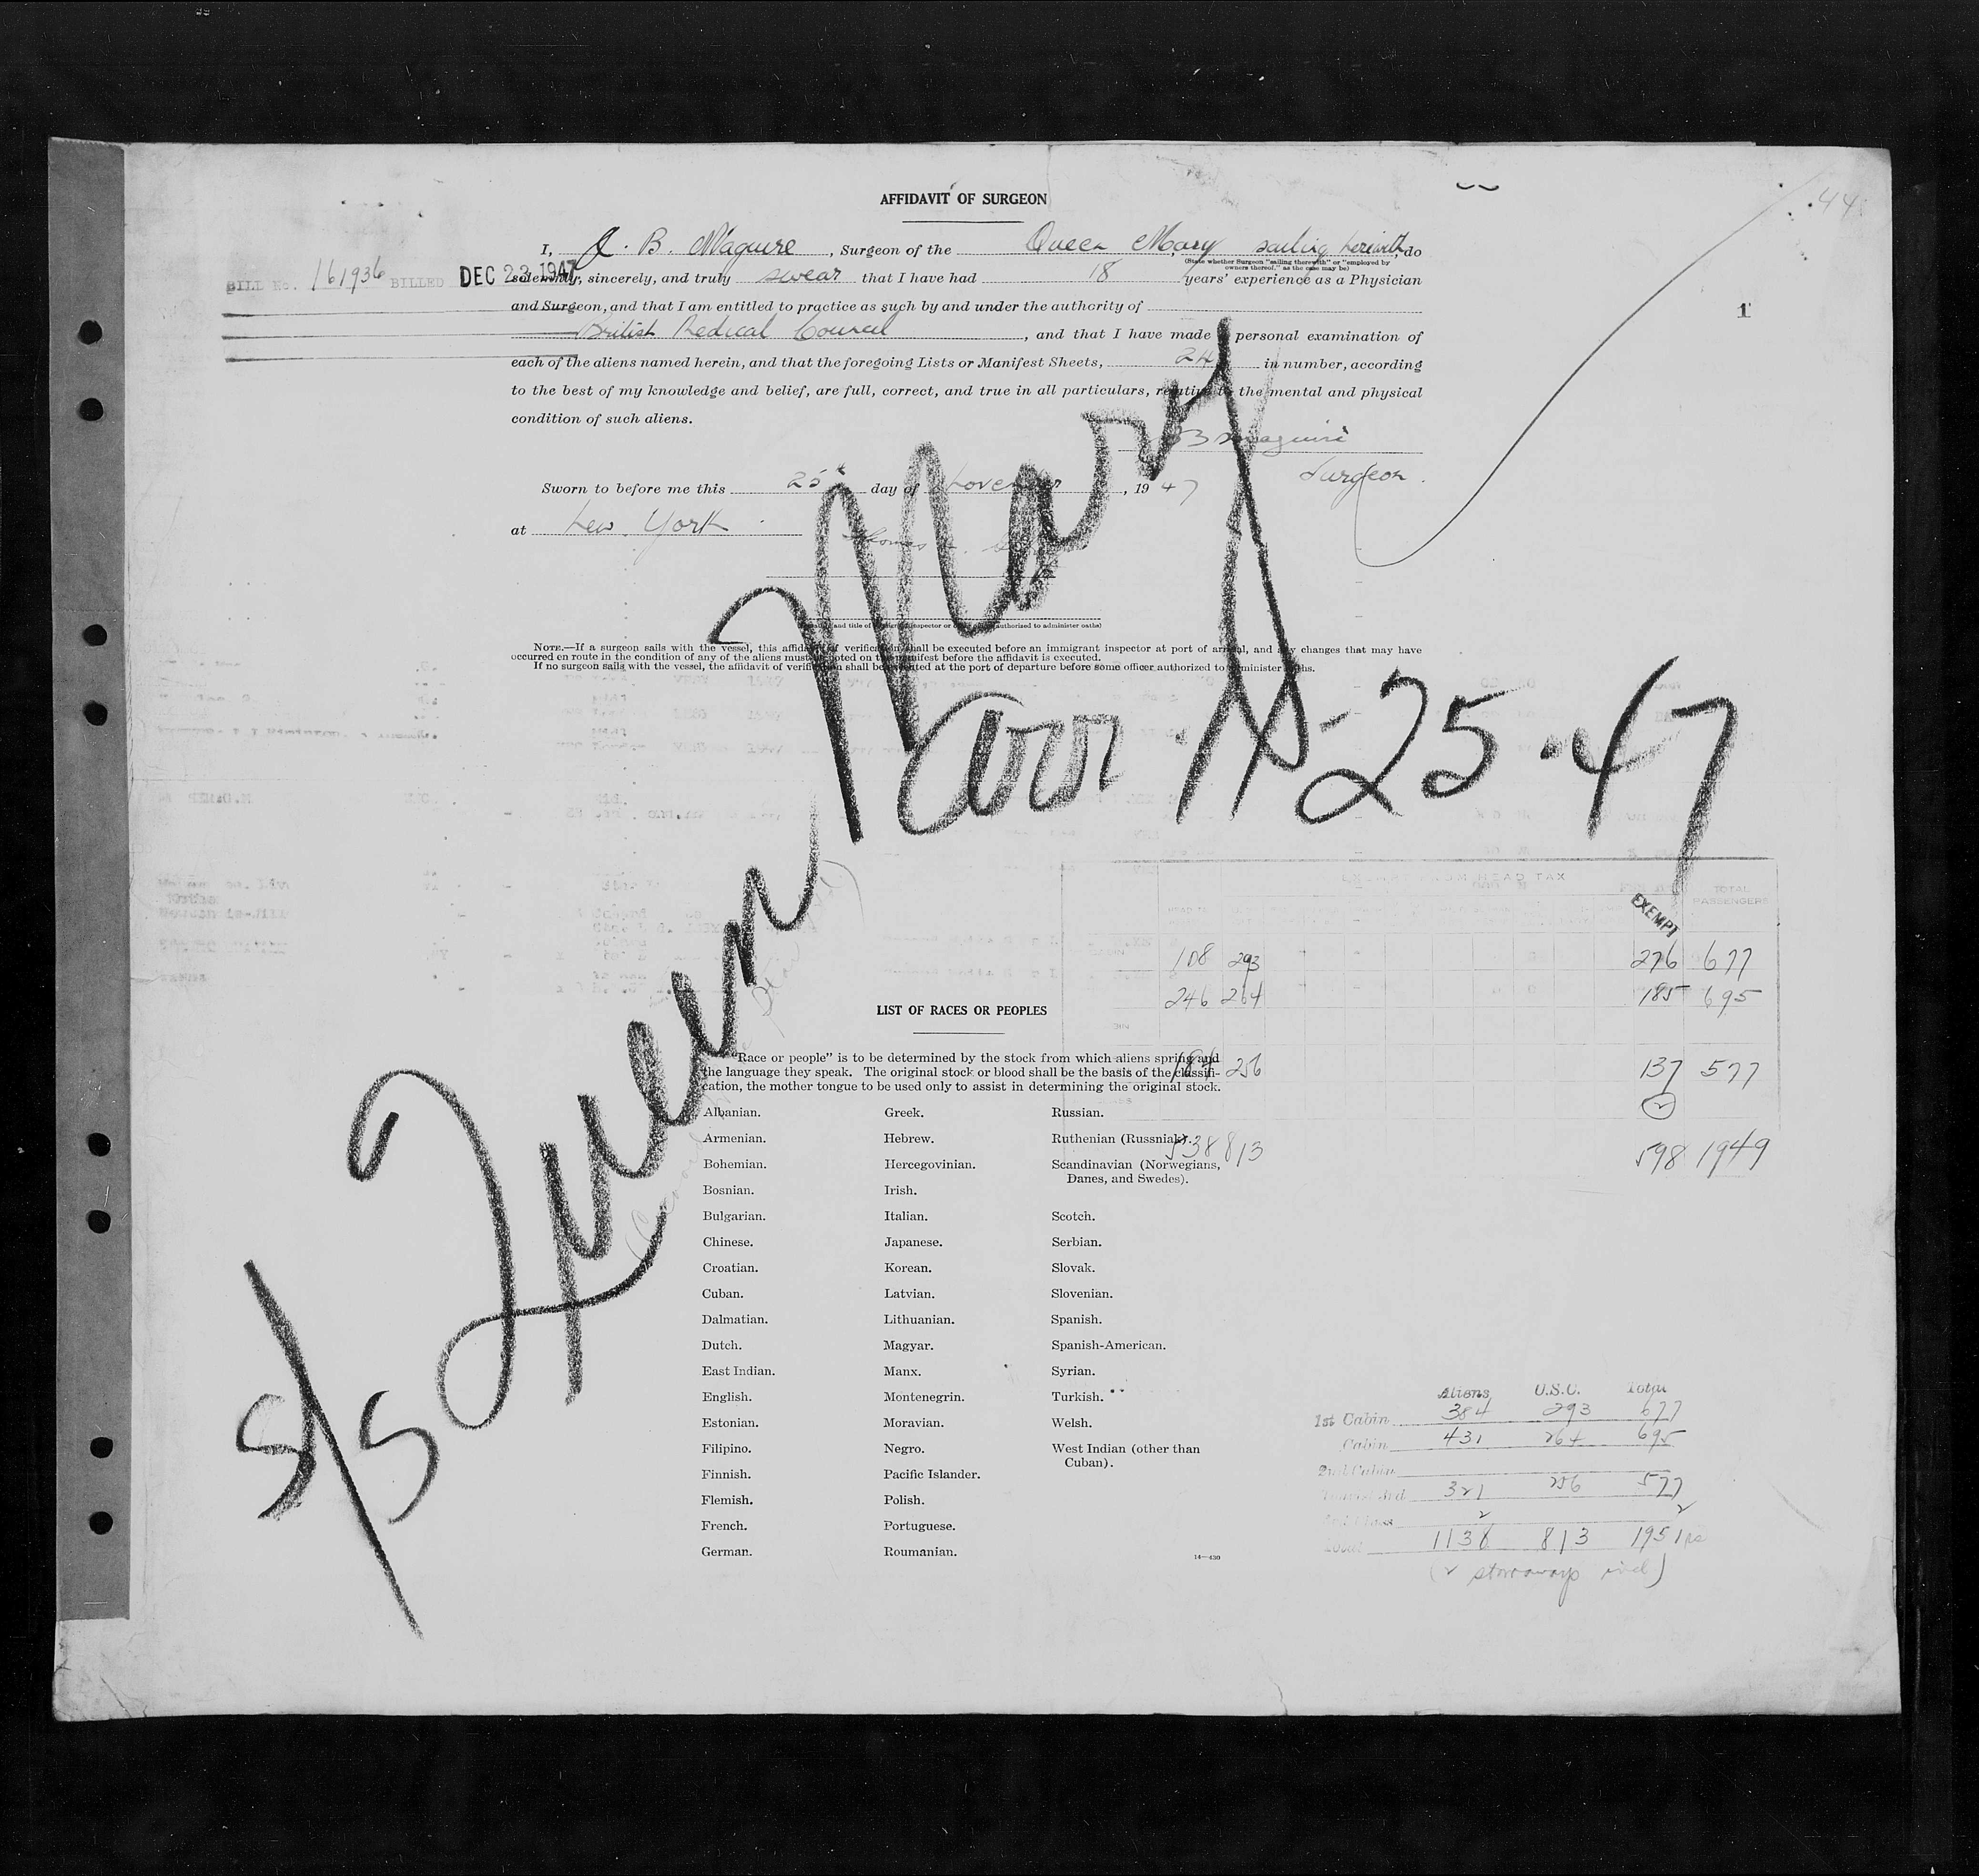 AFFIDAVIT OF SURGEON
I, J. B. Maguire, Surgeon of the Queen Mary, sailing herewith, do
(State whether Surgeon "sailing therewith" or "employed by
owners thereof," as the case may be)
BILL No. 161936 BILLED DEC 23 1947
solemnly, sincerely, and truly swear that I have had 18 years' experience as a Physician
and Surgeon, and that I am entitled to practice as such by and under the authority of
British Medical Council, and that I have made personal examination of
1
each of the aliens named herein, and that the foregoing Lists or Manifest Sheets, 24 in number, according
to the best of my knowledge and belief, are full, correct, and true in all particulars, relative to the mental and physical
condition of such aliens.
B Maguire
Surgeon.
Sworn to before me this 25 day of November, 1947
at New York
Thomas
and title of inspector or authorized to administer oaths)
NOTE.—If a surgeon sails with the vessel, this affidavit of verification shall be executed before an immigrant inspector at port of arrival, and any changes that may have
occurred en route in the condition of any of the aliens must be noted on the manifest before the affidavit is executed.
If no surgeon sails with the vessel, the affidavit of verification shall be executed at the port of departure before some officer authorized to administer oaths.
S/S Queen Mary
arr 11-25-47
EXEMPT FROM HEAD TAX
EXEMPT
TOTAL
PASSENGERS
108 293 276 677
246 264 185 695
184 256 137 577
2
538 813 598 1949
LIST OF RACES OR PEOPLES
"Race or people" is to be determined by the stock from which aliens spring and
the language they speak. The original stock or blood shall be the basis of the classifi-
cation, the mother tongue to be used only to assist in determining the original stock.
Albanian.
Armenian.
Bohemian.
Bosnian.
Bulgarian.
Chinese.
Croatian.
Cuban.
Dalmatian.
Dutch.
East Indian.
English.
Estonian.
Filipino.
Finnish.
Flemish.
French.
German.
Greek.
Hebrew.
Hercegovinian.
Irish.
Italian.
Japanese.
Korean.
Latvian.
Lithuanian.
Magyar.
Manx.
Montenegrin.
Moravian.
Negro.
Pacific Islander.
Polish.
Portuguese.
Roumanian.
Russian.
Ruthenian (Russniak).
Scandinavian (Norwegians,
Danes, and Swedes).
Scotch.
Serbian.
Slovak.
Slovenian.
Spanish.
Spanish-American.
Syrian.
Turkish.
Welsh.
West Indian (other than
Cuban).
14—430
Aliens U.S.C. Total
1st Cabin 384 293 677
Cabin 431 264 695
2nd Cabin
Tourist 3rd 321 256 577
3rd Class 2 2
Total 1138 813 1951
(2 stowaways incl)